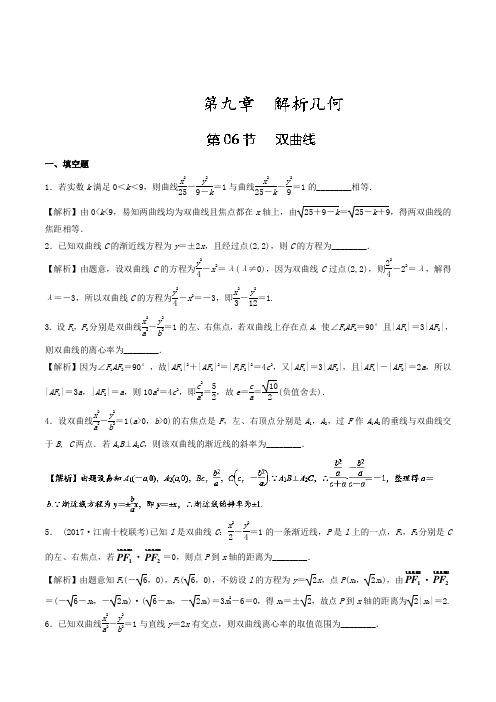 第九章 解析几何
第06节 双曲线
一、填空题
1．若实数 k 满足 0＜k＜9，则曲线 x²/25－y²/(9－k)＝1 与曲线 x²/(25－k)－y²/9＝1 的________相等．
【解析】由 0<k<9，易知两曲线均为双曲线且焦点都在 x 轴上，由√(25＋9－k)＝√(25－k＋9)，得两双曲线的
焦距相等．
2．已知双曲线 C 的渐近线方程为 y＝±2x，且经过点(2,2)，则 C 的方程为________．
【解析】由题意，设双曲线 C 的方程为 y²/4－x²＝λ(λ≠0)，因为双曲线 C 过点(2,2)，则 2²/4－2²＝λ，解得
λ＝－3，所以双曲线 C 的方程为 y²/4－x²＝－3，即 x²/3－y²/12＝1.
3．设 F₁，F₂分别是双曲线 x²/a²－y²/b²＝1 的左、右焦点，若双曲线上存在点 A，使∠F₁AF₂＝90°且|AF₁|＝3|AF₂|，
则双曲线的离心率为________．
【解析】因为∠F₁AF₂＝90°，故|AF₁|²＋|AF₂|²＝|F₁F₂|²＝4c²，又|AF₁|＝3|AF₂|，且|AF₁|－|AF₂|＝2a，所以
|AF₁|＝3a，|AF₂|＝a，则 10a²＝4c²，即 c²/a²＝5/2，故 e＝c/a＝√10/2(负值舍去)．
4．设双曲线 x²/a²－y²/b²＝1(a>0，b>0)的右焦点是 F，左、右顶点分别是 A₁，A₂，过 F 作 A₁A₂的垂线与双曲线交
于 B，C 两点．若 A₁B⊥A₂C，则该双曲线的渐近线的斜率为________．
【解析】由题设易知 A₁(－a,0)，A₂(a,0)，B(c，b²/a)，C(c，－b²/a)．∵A₁B⊥A₂C，∴(b²/a)/(c＋a)·(－b²/a)/(c－a)＝－1，整理得 a＝
b.∵渐近线方程为 y＝±(b/a)x，即 y＝±x，∴渐近线的斜率为±1.
5．(2017·江南十校联考)已知 l 是双曲线 C：x²/2－y²/4＝1 的一条渐近线，P 是 l 上的一点，F₁，F₂分别是 C
的左、右焦点，若PF₁·PF₂＝0，则点 P 到 x 轴的距离为________．
【解析】由题意知 F₁(－√6，0)，F₂(√6，0)，不妨设 l 的方程为 y＝√2x，点 P(x₀，√2x₀)，由PF₁·PF₂
＝(－√6－x₀，－√2x₀)·(√6－x₀，－√2x₀)＝3x₀²－6＝0，得 x₀＝±√2，故点 P 到 x 轴的距离为√2|x₀|＝2.
6．已知双曲线 x²/a²－y²/b²＝1 与直线 y＝2x 有交点，则双曲线离心率的取值范围为________．